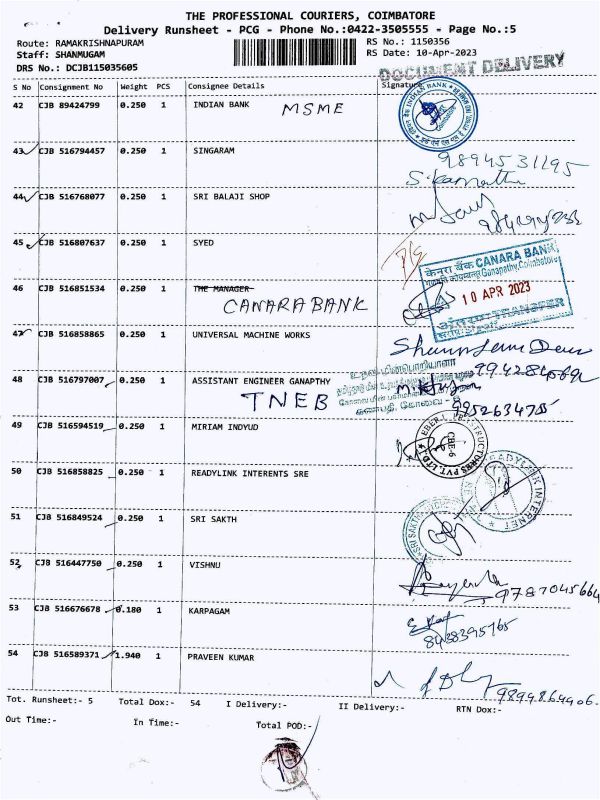 THE PROFESSIONAL COURIERS, COIMBATORE
Delivery Runsheet - PCG - Phone No.:0422-3505555 - Page No.:5
Route: RAMAKRISHNAPURAM RS No.: 1150356
Staff: SHANMUGAM RS Date: 10-Apr-2023
DRS No.: DCJB115035605 DOCUMENT DELIVERY
S No Consignment No Weight PCS Consignee Details Signature
42 CJB 89424799 0.250 1 INDIAN BANK MSME
43 CJB 516794457 0.250 1 SINGARAM 9894531195
44 CJB 516768077 0.250 1 SRI BALAJI SHOP
45 CJB 516807637 0.250 1 SYED
केनरा बैंक CANARA BANK
Ganapathy, Coimbatore
46 CJB 516851534 0.250 1 THE MANAGER 10 APR 2023
CANARA BANK
TRANSFER
47 CJB 516858865 0.250 1 UNIVERSAL MACHINE WORKS
உதவி மின்பொறியாளர்
48 CJB 516797007 0.250 1 ASSISTANT ENGINEER GANAPTHY
TNEB 9952634755
கணபதி, கோவை - 6
49 CJB 516594519 0.250 1 MIRIAM INDYUD
CBE-6
50 CJB 516858825 0.250 1 READYLINK INTERENTS SRE
51 CJB 516849524 0.250 1 SRI SAKTH
52 CJB 516447750 0.250 1 VISHNU 9787045664
53 CJB 516676678 0.180 1 KARPAGAM
8428395765
54 CJB 516589371 1.940 1 PRAVEEN KUMAR
9899864406
Tot. Runsheet:- 5 Total Dox:- 54 I Delivery:- II Delivery:- RTN Dox:-
Out Time:- In Time:- Total POD:-